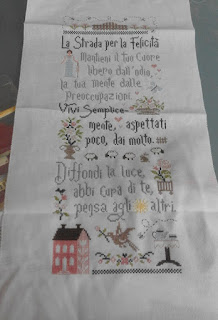 La Strada per la Felicità
Mantieni il tuo Cuore
libero dall'odio,
la tua mente dalle
Preoccupazioni.
Vivi Semplice-
mente, aspettati
poco, dai molto.
Diffondi la luce,
abbi cura di te,
pensa agli altri.